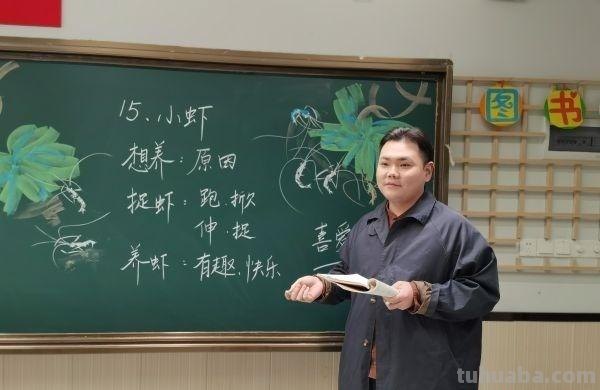 15、小虾
想养：原因
捉虾：跑、掀
伸、捉
养虾：有趣、快乐
喜爱
图书
tuhuaba.com